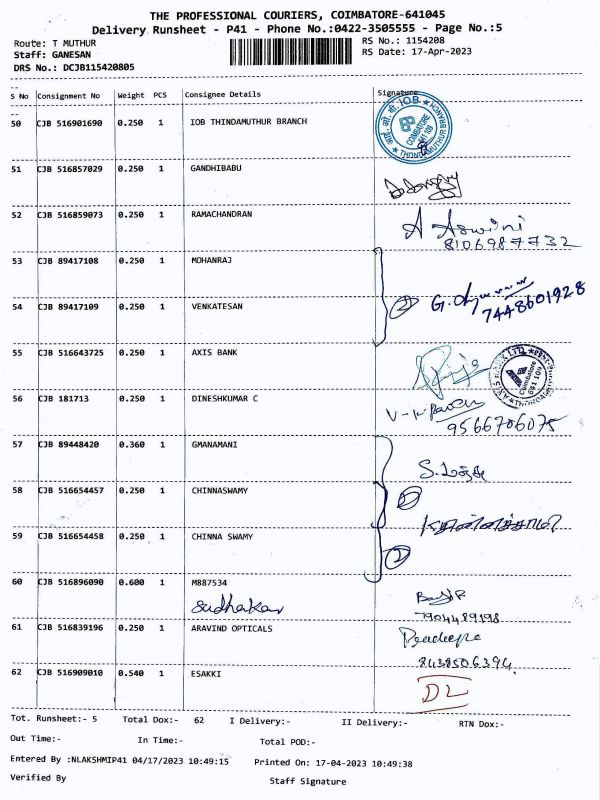 THE PROFESSIONAL COURIERS, COIMBATORE-641045
Delivery Runsheet - P41 - Phone No.:0422-3505555 - Page No.:5
Route: T MUTHUR RS No.: 1154208
Staff: GANESAN RS Date: 17-Apr-2023
DRS No.: DCJB115420805
S No Consignment No Weight PCS Consignee Details Signature
50 CJB 516901690 0.250 1 IOB THINDAMUTHUR BRANCH
51 CJB 516857029 0.250 1 GANDHIBABU
52 CJB 516859073 0.250 1 RAMACHANDRAN A Aswini
8106987732
53 CJB 89417108 0.250 1 MOHANRAJ
54 CJB 89417109 0.250 1 VENKATESAN 2 G.
7448601928
55 CJB 516643725 0.250 1 AXIS BANK
56 CJB 181713 0.250 1 DINESHKUMAR C
9566706075
57 CJB 89448420 0.360 1 GMANAMANI
58 CJB 516654457 0.250 1 CHINNASWAMY
59 CJB 516654458 0.250 1 CHINNA SWAMY
60 CJB 516896090 0.600 1 M887534
Sudhakar
7904489198
61 CJB 516839196 0.250 1 ARAVIND OPTICALS Pradeepa
8438506394
62 CJB 516909010 0.540 1 ESAKKI
DL
Tot. Runsheet:- 5 Total Dox:- 62 I Delivery:- II Delivery:- RTN Dox:-
Out Time:- In Time:- Total POD:-
Entered By :NLAKSHMIP41 04/17/2023 10:49:15 Printed On: 17-04-2023 10:49:38
Verified By Staff Signature